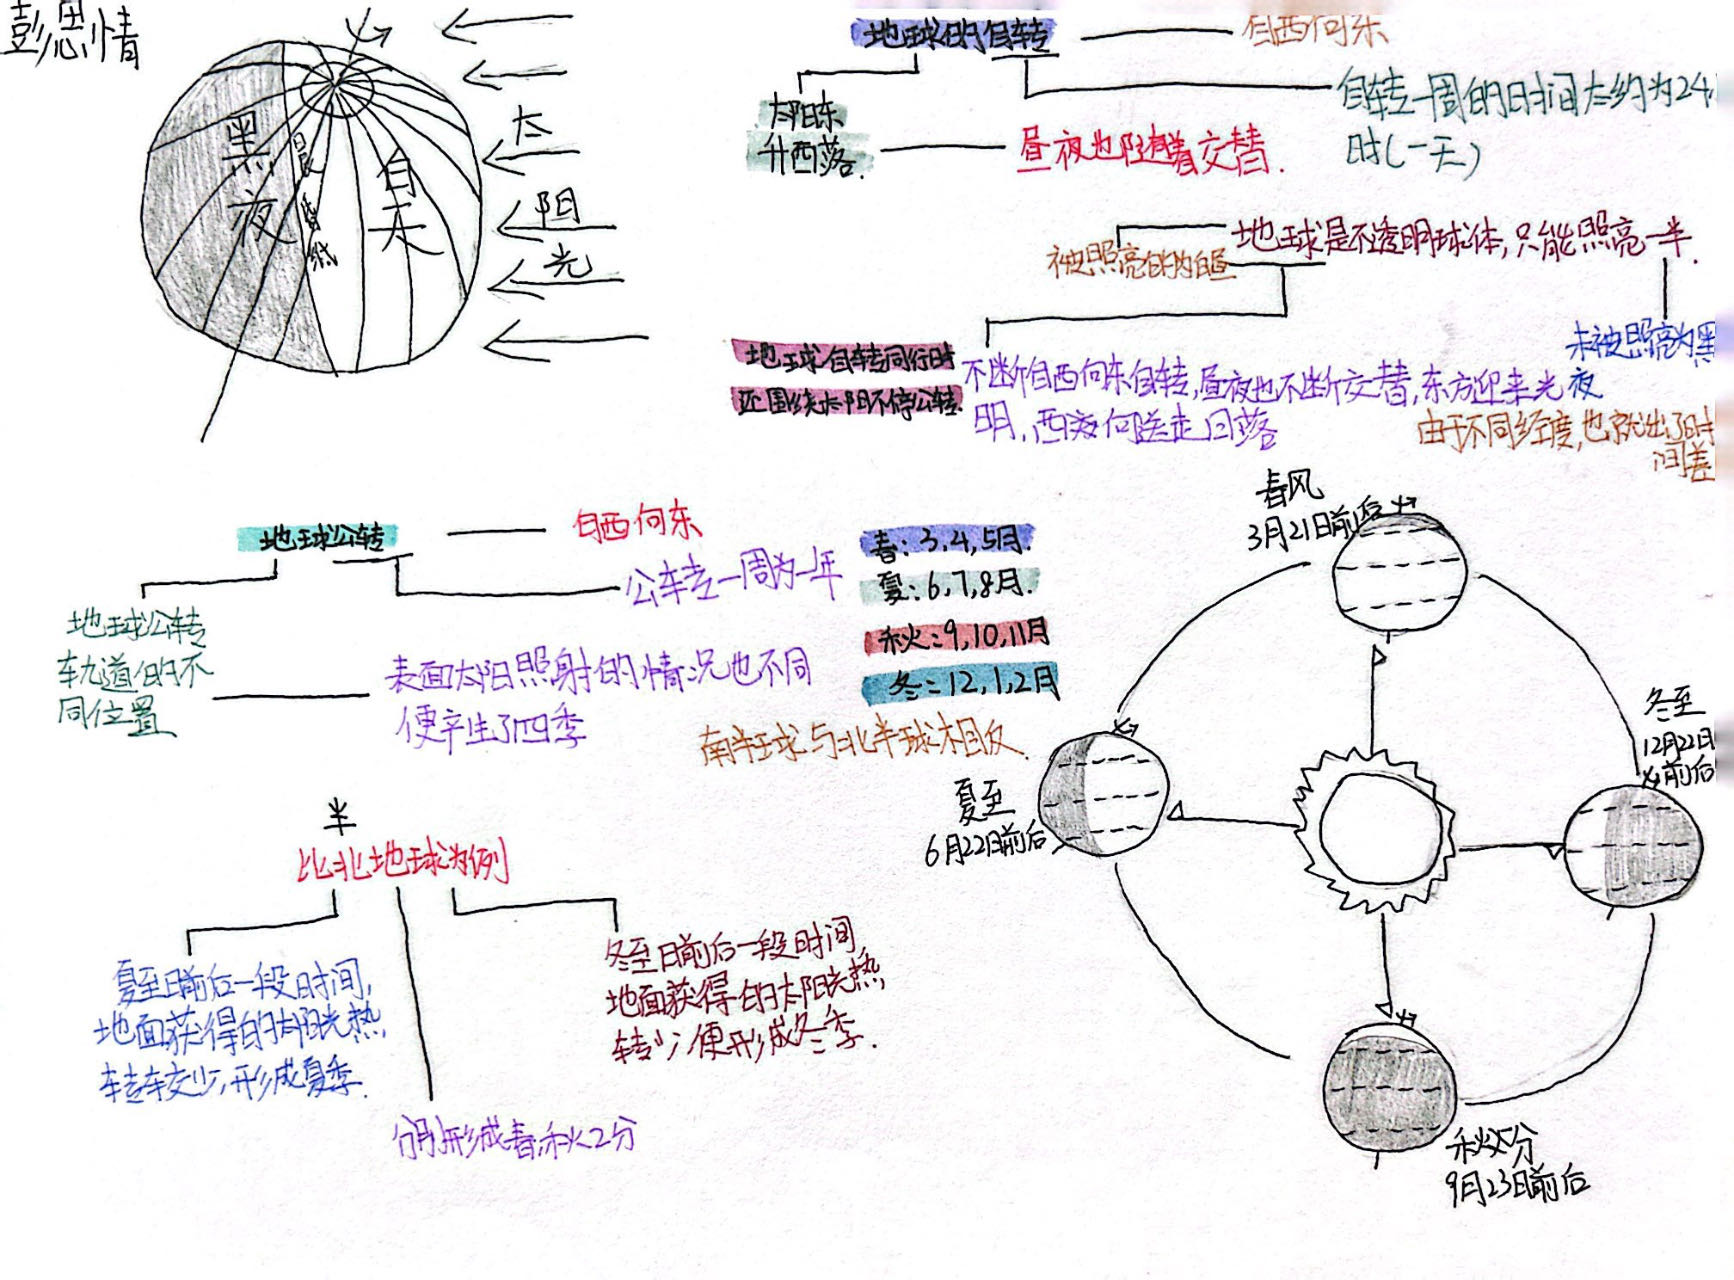 彭思情
黑夜
白天
太
阳
光
地球的自转
自西向东
自转一周的时间大约为24
时(一天)
太阳东
升西落.
昼夜也随着交替.
地球是不透明球体,只能照亮一半.
被照亮的为白昼
未被照亮为黑
夜
地球自转同行时
还围绕太阳不停公转.
不断自西向东自转,昼夜也不断交替,东方迎来光
明,西方向送走日落
由于不同经度,也就出了时
间差
地球公转
自西向东
公转一周为一年
地球公转
轨道的不
同位置
表面太阳照射的情况也不同
便产生了四季
春:3,4,5月.
夏:6,7,8月.
秋:9,10,11月
冬:12,1,2月
南半球与北半球相反.
半
比北地球为例
夏至日前后一段时间,
地面获得的太阳光热,
形成夏季.
冬至日前后一段时间
地面获得的太阳光热,
转少,便形成冬季.
分别形成春,秋2分
春风
3月21日前后
冬至
12月22日
前后
夏至
6月22日前后
秋分
9月23日前后